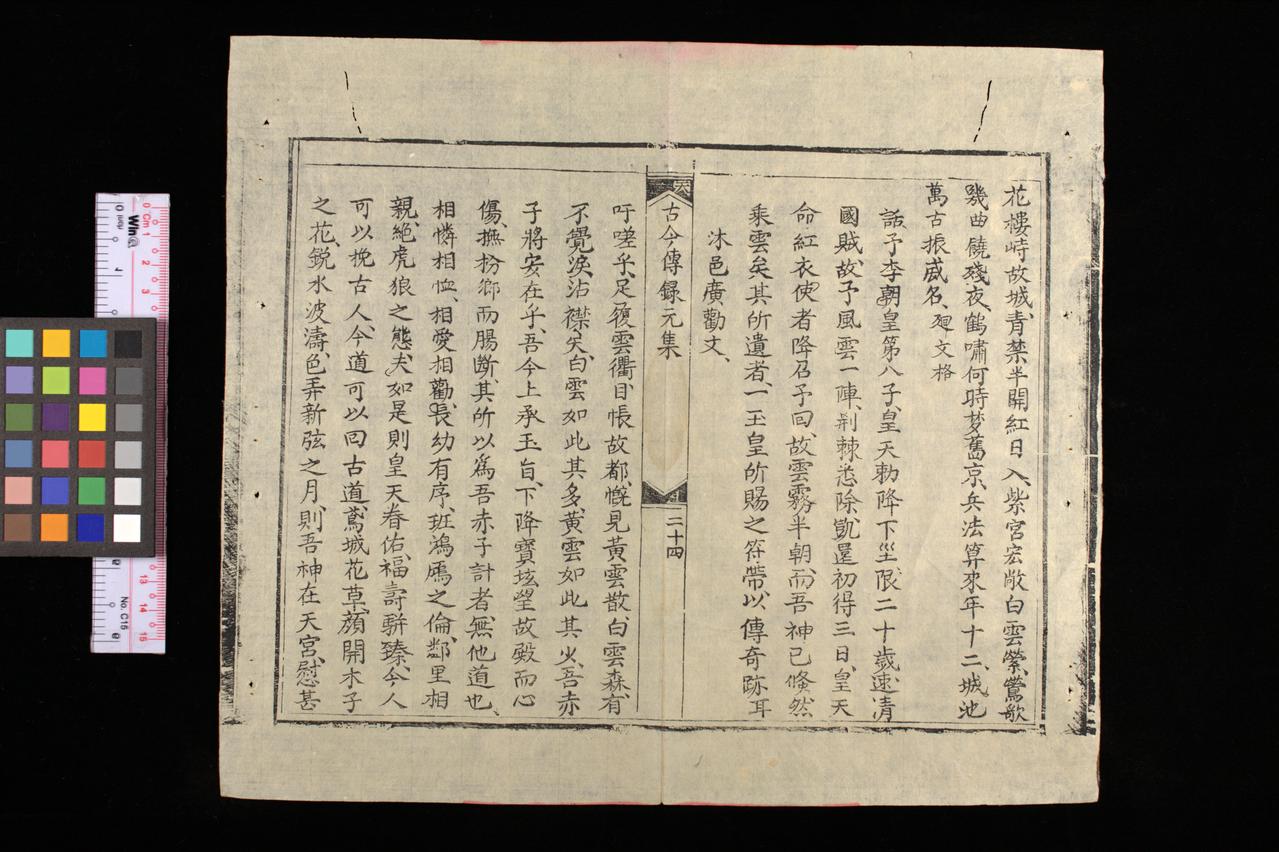 花樓峙故城、青禁半開紅日入、紫宮宏敞白雲縈、鶯歌
幾曲饒殘夜、鶴嘯何時梦舊京、兵法算來年十二、城池
萬古振威名、廻文格
話、予李朝皇第八子、皇天勅降下坐、限二十歲、速清
國賊、故予風雲一陣、荆棘悉除、凱還初得三日、皇天
命紅衣使者降召予回、故雲霧半朝、而吾神已倏然
乘雲矣、其所遺者、一玉皇所賜之符帶、以傳奇跡耳
沐邑廣勸文、
古今傳錄元集
二十四
吁嗟乎、足履雲衢、目悵故都、慨見黃雲散、白雲森、有
不覺淚沾襟矣、白雲如此其多、黃雲如此其少、吾赤
子將安在乎、吾今上承玉旨、下降寶坛、望故殿而心
傷、撫枌鄉而腸斷、其所以爲吾赤子計者、無他道也、
相憐相恤、相愛相勸、長幼有序、班鴻鴈之倫、鄰里相
親、絶虎狼之態、夫如是則皇天眷佑、福壽駢臻、今人
可以挽古人、今道可以回古道、鳶城花草、顏開木子
之花、銳水波濤、色弄新弦之月、則吾神在天宮、慰甚